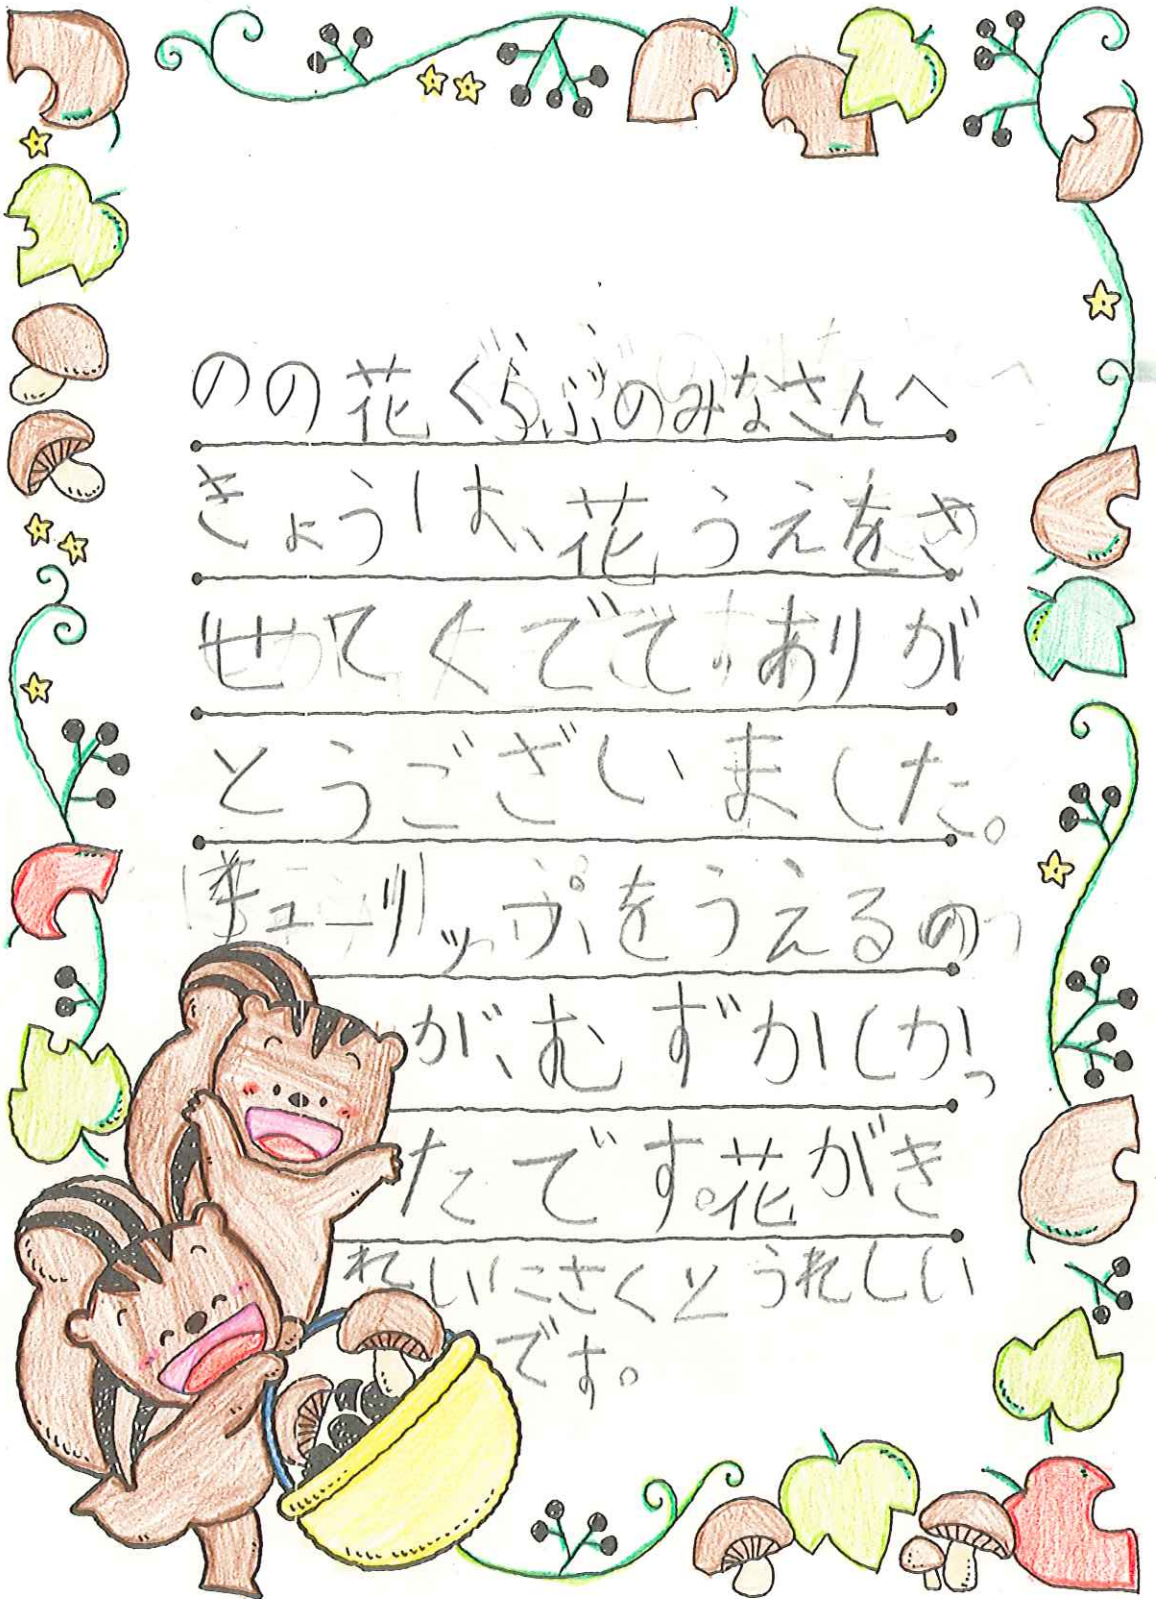 のの花くらぶのみなさんへ
きょうは、花うえをさ
せてくでてありが
とうございました。
チューリップをうえるの
が、むずかしかっ
たです。花がき
れいにさくとうれしい
です。